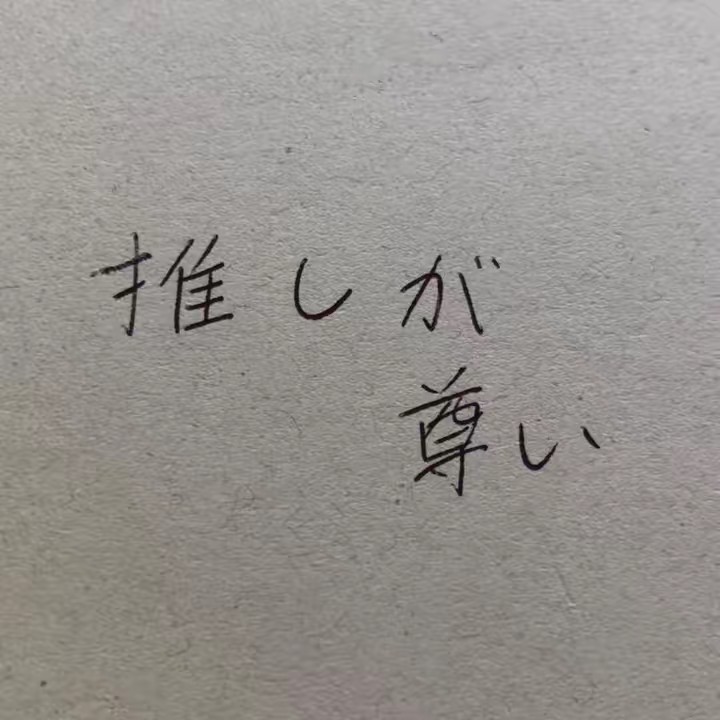 推しが
尊い